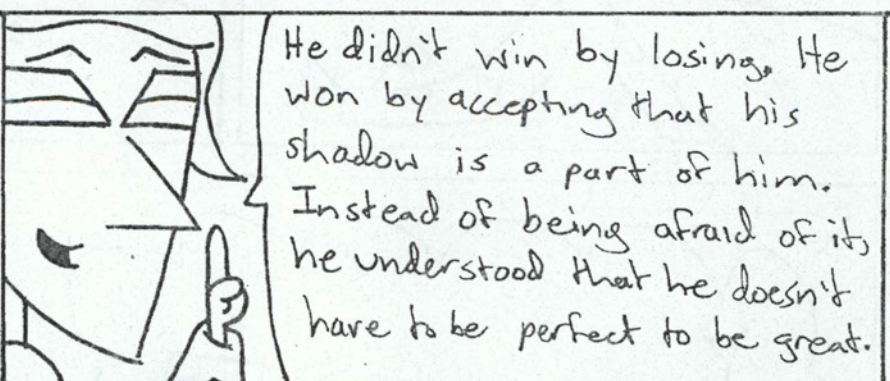 He didn't win by losing. He
won by accepting that his
shadow is a part of him.
Instead of being afraid of it,
he understood that he doesn't
have to be perfect to be great.